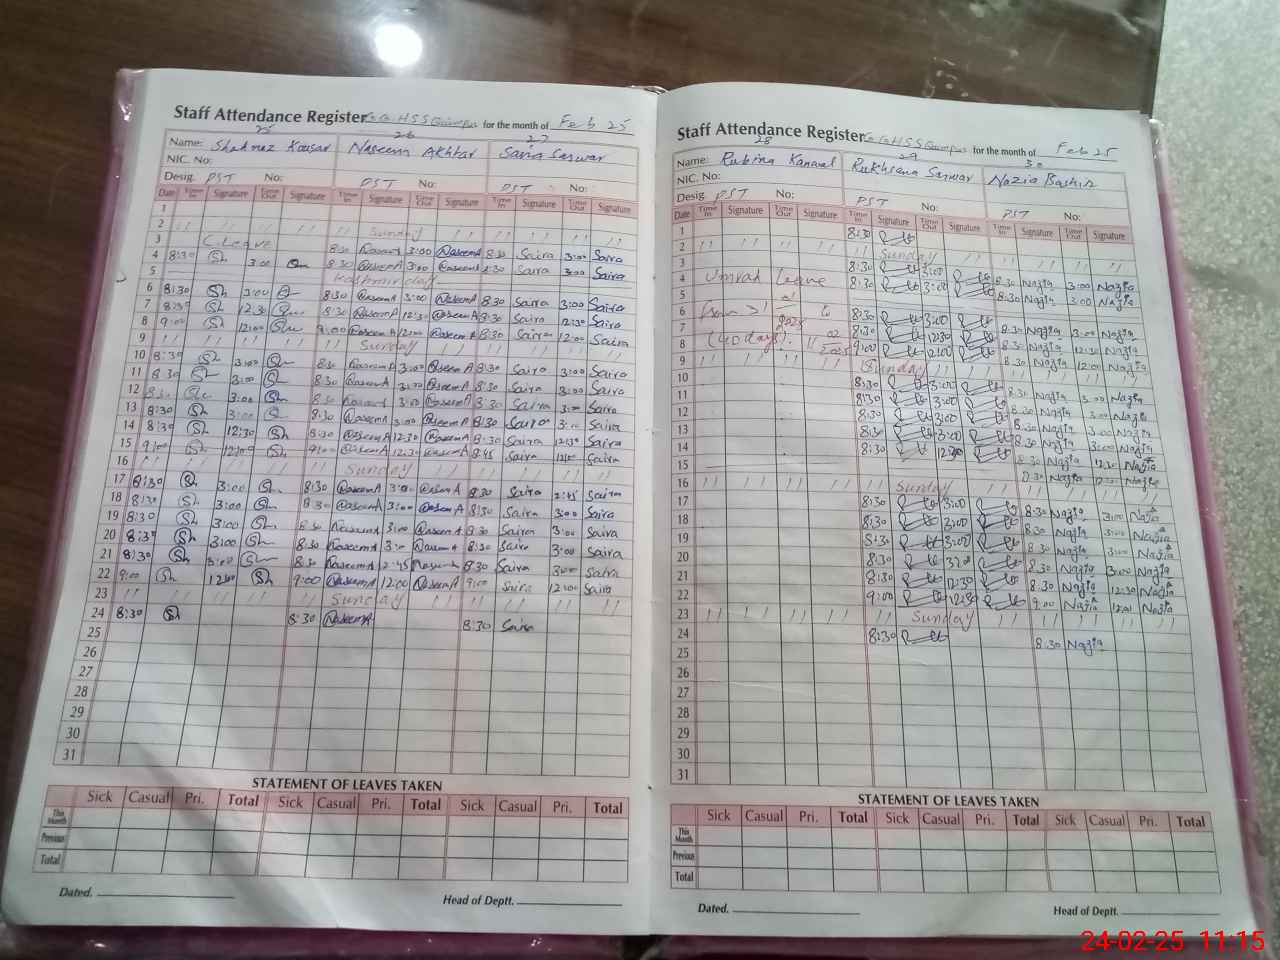 Staff Attendance Register G.G.HSS for the month of Feb 25
25 26 27
Name: Shahnaz Kousar Naseem Akhtar Saira Sarwar
NIC. No:
Desig. PST No: PST No: PST No:
Date Time In Signature Time Out Signature Time In Signature Time Out Signature Time In Signature Time Out Signature
1
2 Sunday
3 C Leave 8:30 NaseemA 3:00 NaseemA 8:30 Saira 3:00 Saira
4 8:30 Sh 3:00 8:30 NaseemA 3:00 NaseemA 8:30 Saira 3:00 Saira
5 Kashmir day
6 8:30 Sh 3:00 8:30 NaseemA 3:00 NaseemA 8:30 Saira 3:00 Saira
7 8:30 Sh 12:30 8:30 NaseemA 12:30 NaseemA 8:30 Saira 12:30 Saira
8 9:00 Sh 12:00 9:00 NaseemA 12:00 NaseemA 8:30 Saira 12:00 Saira
9 Sunday
10 8:30 Sh 3:00 8:30 NaseemA 3:00 NaseemA 8:30 Saira 3:00 Saira
11 8:30 3:00 Sh 8:30 NaseemA 3:00 NaseemA 8:30 Saira 3:00 Saira
12 8:30 3:00 Sh 8:30 NaseemA 3:00 NaseemA 8:30 Saira 3:00 Saira
13 8:30 Sh 3:00 Sh 8:30 NaseemA 3:00 NaseemA 8:30 Saira 3:00 Saira
14 8:30 Sh 12:30 Sh 8:30 NaseemA 12:30 NaseemA 8:30 Saira 12:30 Saira
15 9:00 Sh 12:00 Sh 9:00 NaseemA 12:30 NaseemA 8:45 Saira 12:00 Saira
16 Sunday
17 8:30 3:00 Sh 8:30 NaseemA 3:00 NaseemA 8:30 Saira 2:45 Saira
18 8:30 Sh 3:00 Sh 8:30 NaseemA 3:00 NaseemA 8:30 Saira 3:00 Saira
19 8:30 Sh 3:00 Sh 8:30 NaseemA 3:00 NaseemA 8:30 Saira 3:00 Saira
20 8:30 Sh 3:00 Sh 8:30 NaseemA 3:00 NaseemA 8:30 Saira 3:00 Saira
21 8:30 Sh 3:00 8:30 NaseemA 2:45 NaseemA 8:30 Saira 3:00 Saira
22 9:00 Sh 12:00 Sh 9:00 NaseemA 12:00 NaseemA 9:00 Saira 12:00 Saira
23 Sunday
24 8:30 Sh 8:30 NaseemA 8:30 Saira
25
26
27
28
29
30
31
STATEMENT OF LEAVES TAKEN
Sick Casual Pri. Total Sick Casual Pri. Total Sick Casual Pri. Total
This Month
Previous
Total
Dated. Head of Deptt.
Staff Attendance Register G.G.HSS for the month of Feb 25
28 29 30
Name: Rubina Kanwal Rukhsana Sarwar Nazia Bashir
NIC. No:
Desig. PST No: PST No: PST No:
Date Time In Signature Time Out Signature Time In Signature Time Out Signature Time In Signature Time Out Signature
1 8:30
2 Sunday
3 8:30 3:00 8:30 Nazia 3:00 Nazia
4 Umrah Leave 8:30 3:00 8:30 Nazia 3:00 Nazia
5
6 from 31 01 2025 to 8:30 3:00 8:30 Nazia 3:00 Nazia
7 8:30 12:30 8:30 Nazia 12:30 Nazia
8 (40 days). 11 02 2025 9:00 12:00 8:30 Nazia 12:00 Nazia
9 Sunday
10 8:30 3:00 8:30 Nazia 3:00 Nazia
11 8:30 3:00 8:30 Nazia 3:00 Nazia
12 8:30 3:00 8:30 Nazia 3:00 Nazia
13 8:30 3:00 8:30 Nazia 3:00 Nazia
14 8:30 12:30 8:30 Nazia 12:30 Nazia
15 8:30 Nazia 12:00 Nazia
16 Sunday
17 8:30 3:00 8:30 Nazia 3:00 Nazia
18 8:30 3:00 8:30 Nazia 3:00 Nazia
19 8:30 3:00 8:30 Nazia 3:00 Nazia
20 8:30 8:30 Nazia 3:00 Nazia
21 8:30 12:30 8:30 Nazia 12:30 Nazia
22 9:00 12:30 9:00 Nazia 12:00 Nazia
23 Sunday
24 8:30 8:30 Nazia
25
26
27
28
29
30
31
STATEMENT OF LEAVES TAKEN
Sick Casual Pri. Total Sick Casual Pri. Total Sick Casual Pri. Total
This Month
Previous
Total
Dated. Head of Deptt.
24-02-25 11:15